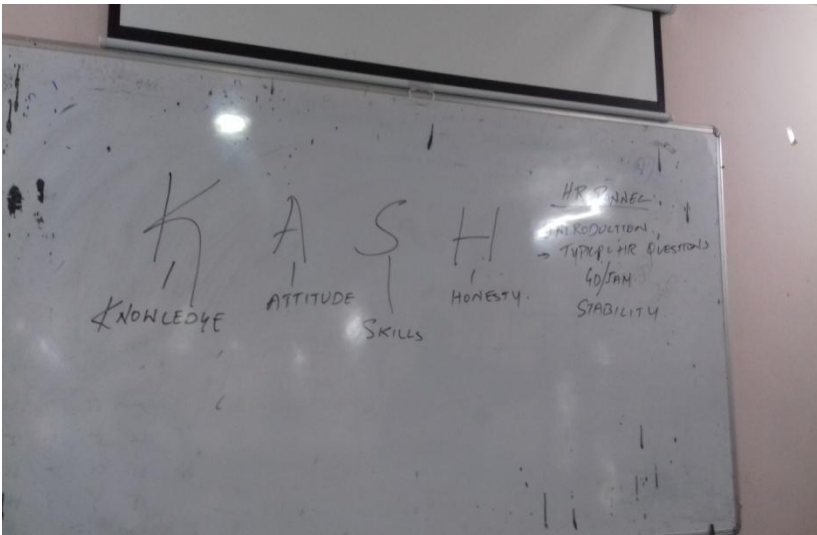 K A S H
KNOWLEDGE
ATTITUDE
SKILLS
HONESTY.
HR PANNEL
INTRODUCTION
→ TYPICAL HR QUESTIONS
GD/JAM
STABILITY